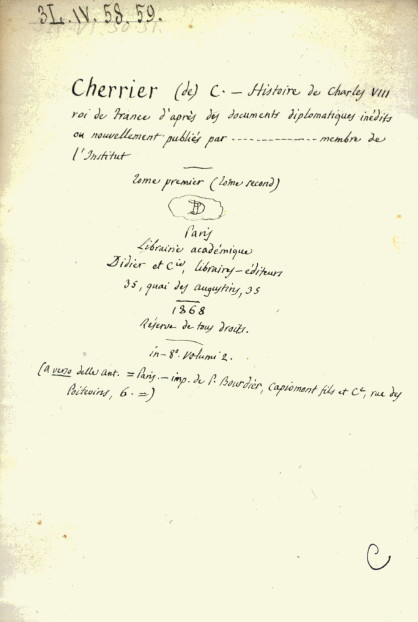 3L. IV. 58. 59.
Cherrier (de) C. — Histoire de Charles VIII
roi de France d'après des documents diplomatiques inédits
ou nouvellement publiés par ------------- membre de
l'Institut
Tome premier (Tome second)
D
Paris
Librairie académique
Didier et Cie, libraires-éditeurs
35, quai des augustins, 35
1868
Réserve de tous droits.
in-8º. Volumi 2.
(a verso delle ant. = Paris. — imp. de P. Bourdier, Capiomont fils et Cº, rue des
Poitevins, 6. =)
C